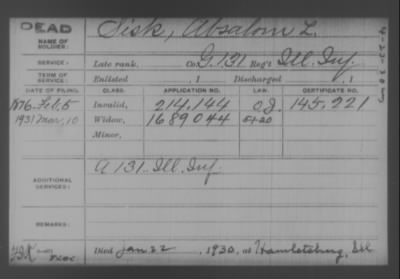 DEAD
NAME OF SOLDIER: Sisk, Absalom L.
SERVICE: Late rank, Co. G, 131 Reg't Ill. Inf.
TERM OF SERVICE: Enlisted , 1 Discharged , 1
DATE OF FILING. CLASS. APPLICATION NO. LAW. CERTIFICATE NO.
1876. Feb. 5 Invalid, 214,144 O.J. 145,221
1931 Mar, 10 Widow, 1689044 5+20
Minor,
ADDITIONAL SERVICES: A 131. Ill. Inf.
REMARKS:
Died Jan 22, 1930, at Hamletsburg, Ill